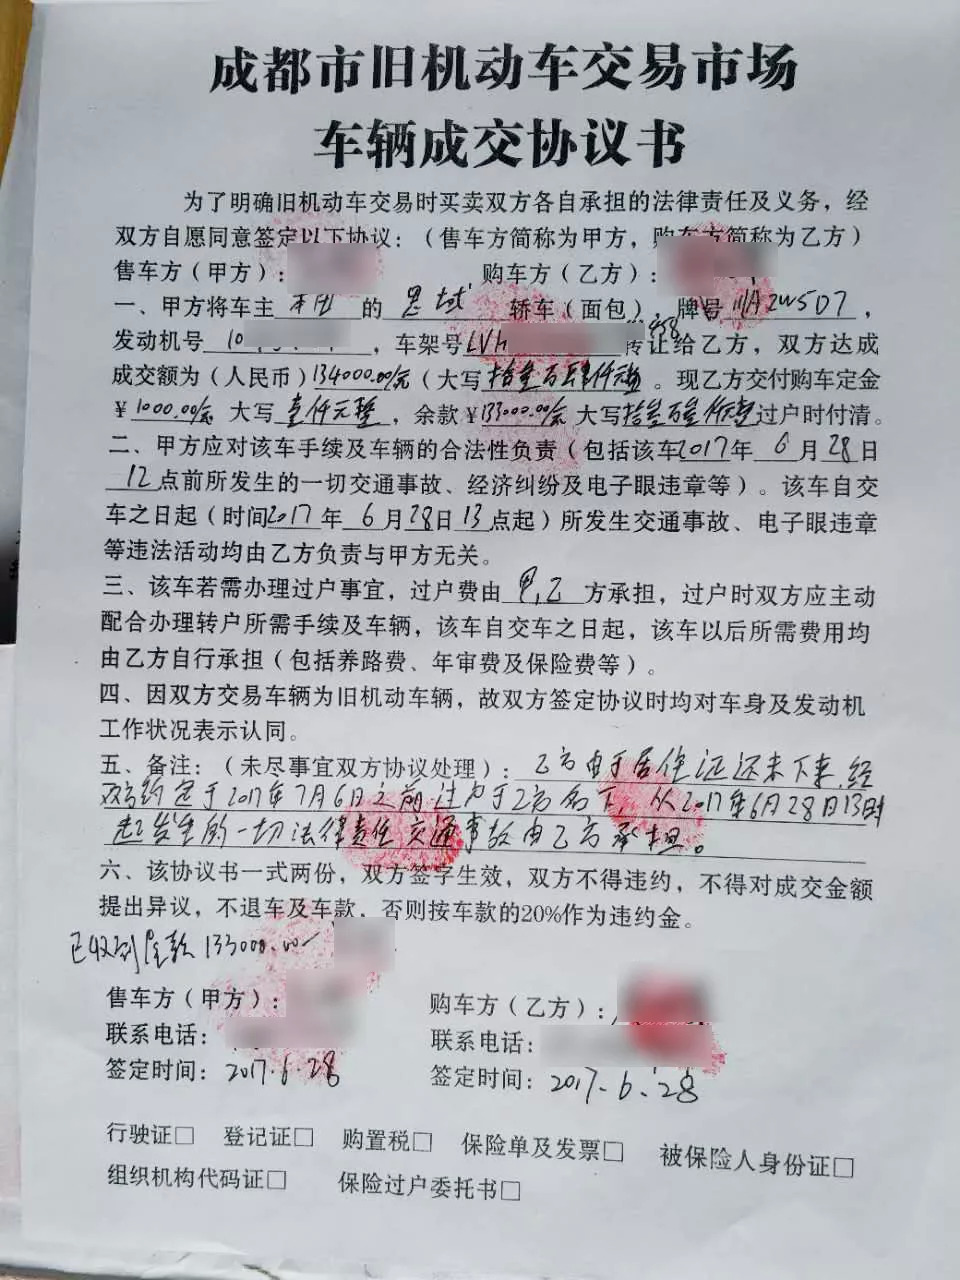 成都市旧机动车交易市场
车辆成交协议书
为了明确旧机动车交易时买卖双方各自承担的法律责任及义务，经
双方自愿同意签定以下协议：（售车方简称为甲方，购车方简称为乙方）
售车方（甲方）： 购车方（乙方）：
一、甲方将车主 本田 的 思域 轿车（面包），牌号 川A2W5D7 ，
发动机号 10 ，车架号 LVH 458 转让给乙方，双方达成
成交额为（人民币）134000.00/元（大写拾叁万肆仟元整。现乙方交付购车定金
￥1000.00/元 大写 壹仟元整 ，余款￥133000.00/元 大写拾叁万叁仟元整过户时付清。
二、甲方应对该车手续及车辆的合法性负责（包括该车2017年 6 月 28 日
12 点前所发生的一切交通事故、经济纠纷及电子眼违章等）。该车自交
车之日起（时间2017年 6 月28日 13 点起）所发生交通事故、电子眼违章
等违法活动均由乙方负责与甲方无关。
三、该车若需办理过户事宜，过户费由 甲,乙 方承担，过户时双方应主动
配合办理转户所需手续及车辆，该车自交车之日起，该车以后所需费用均
由乙方自行承担（包括养路费、年审费及保险费等）。
四、因双方交易车辆为旧机动车辆，故双方签定协议时均对车身及发动机
工作状况表示认同。
五、备注：（未尽事宜双方协议处理）：乙方由于居住证还未下来,经
双方约定于2017年7月6日之前过户于乙方名下，从2017年6月28日13时
起发生的一切法律责任交通事故由乙方承担。
六、该协议书一式两份，双方签字生效，双方不得违约，不得对成交金额
提出异议，不退车及车款，否则按车款的20%作为违约金。
已收到全款 133000.00
售车方（甲方）： 购车方（乙方）：
联系电话： 联系电话：
签定时间：2017.6.28 签定时间：2017.6.28
行驶证□ 登记证□ 购置税□ 保险单及发票□ 被保险人身份证□
组织机构代码证□ 保险过户委托书□